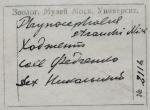 Зоолог. Музей Моск. Университ.
Phrynocephalus
strauchi Nik
Ходжент
coll Федченко
det Никольский
№ 2116